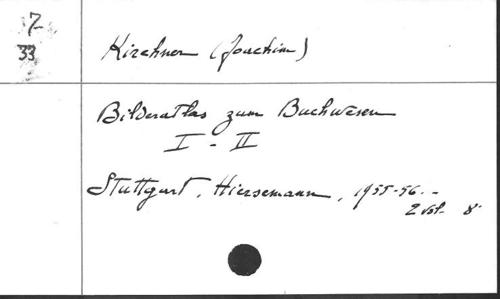 7
33
Kirchner (Joachim)
Bilderatlas zum Buchwesen
I - II
Stuttgart, Hiersemann, 1955-56. -
2 vol. 8°